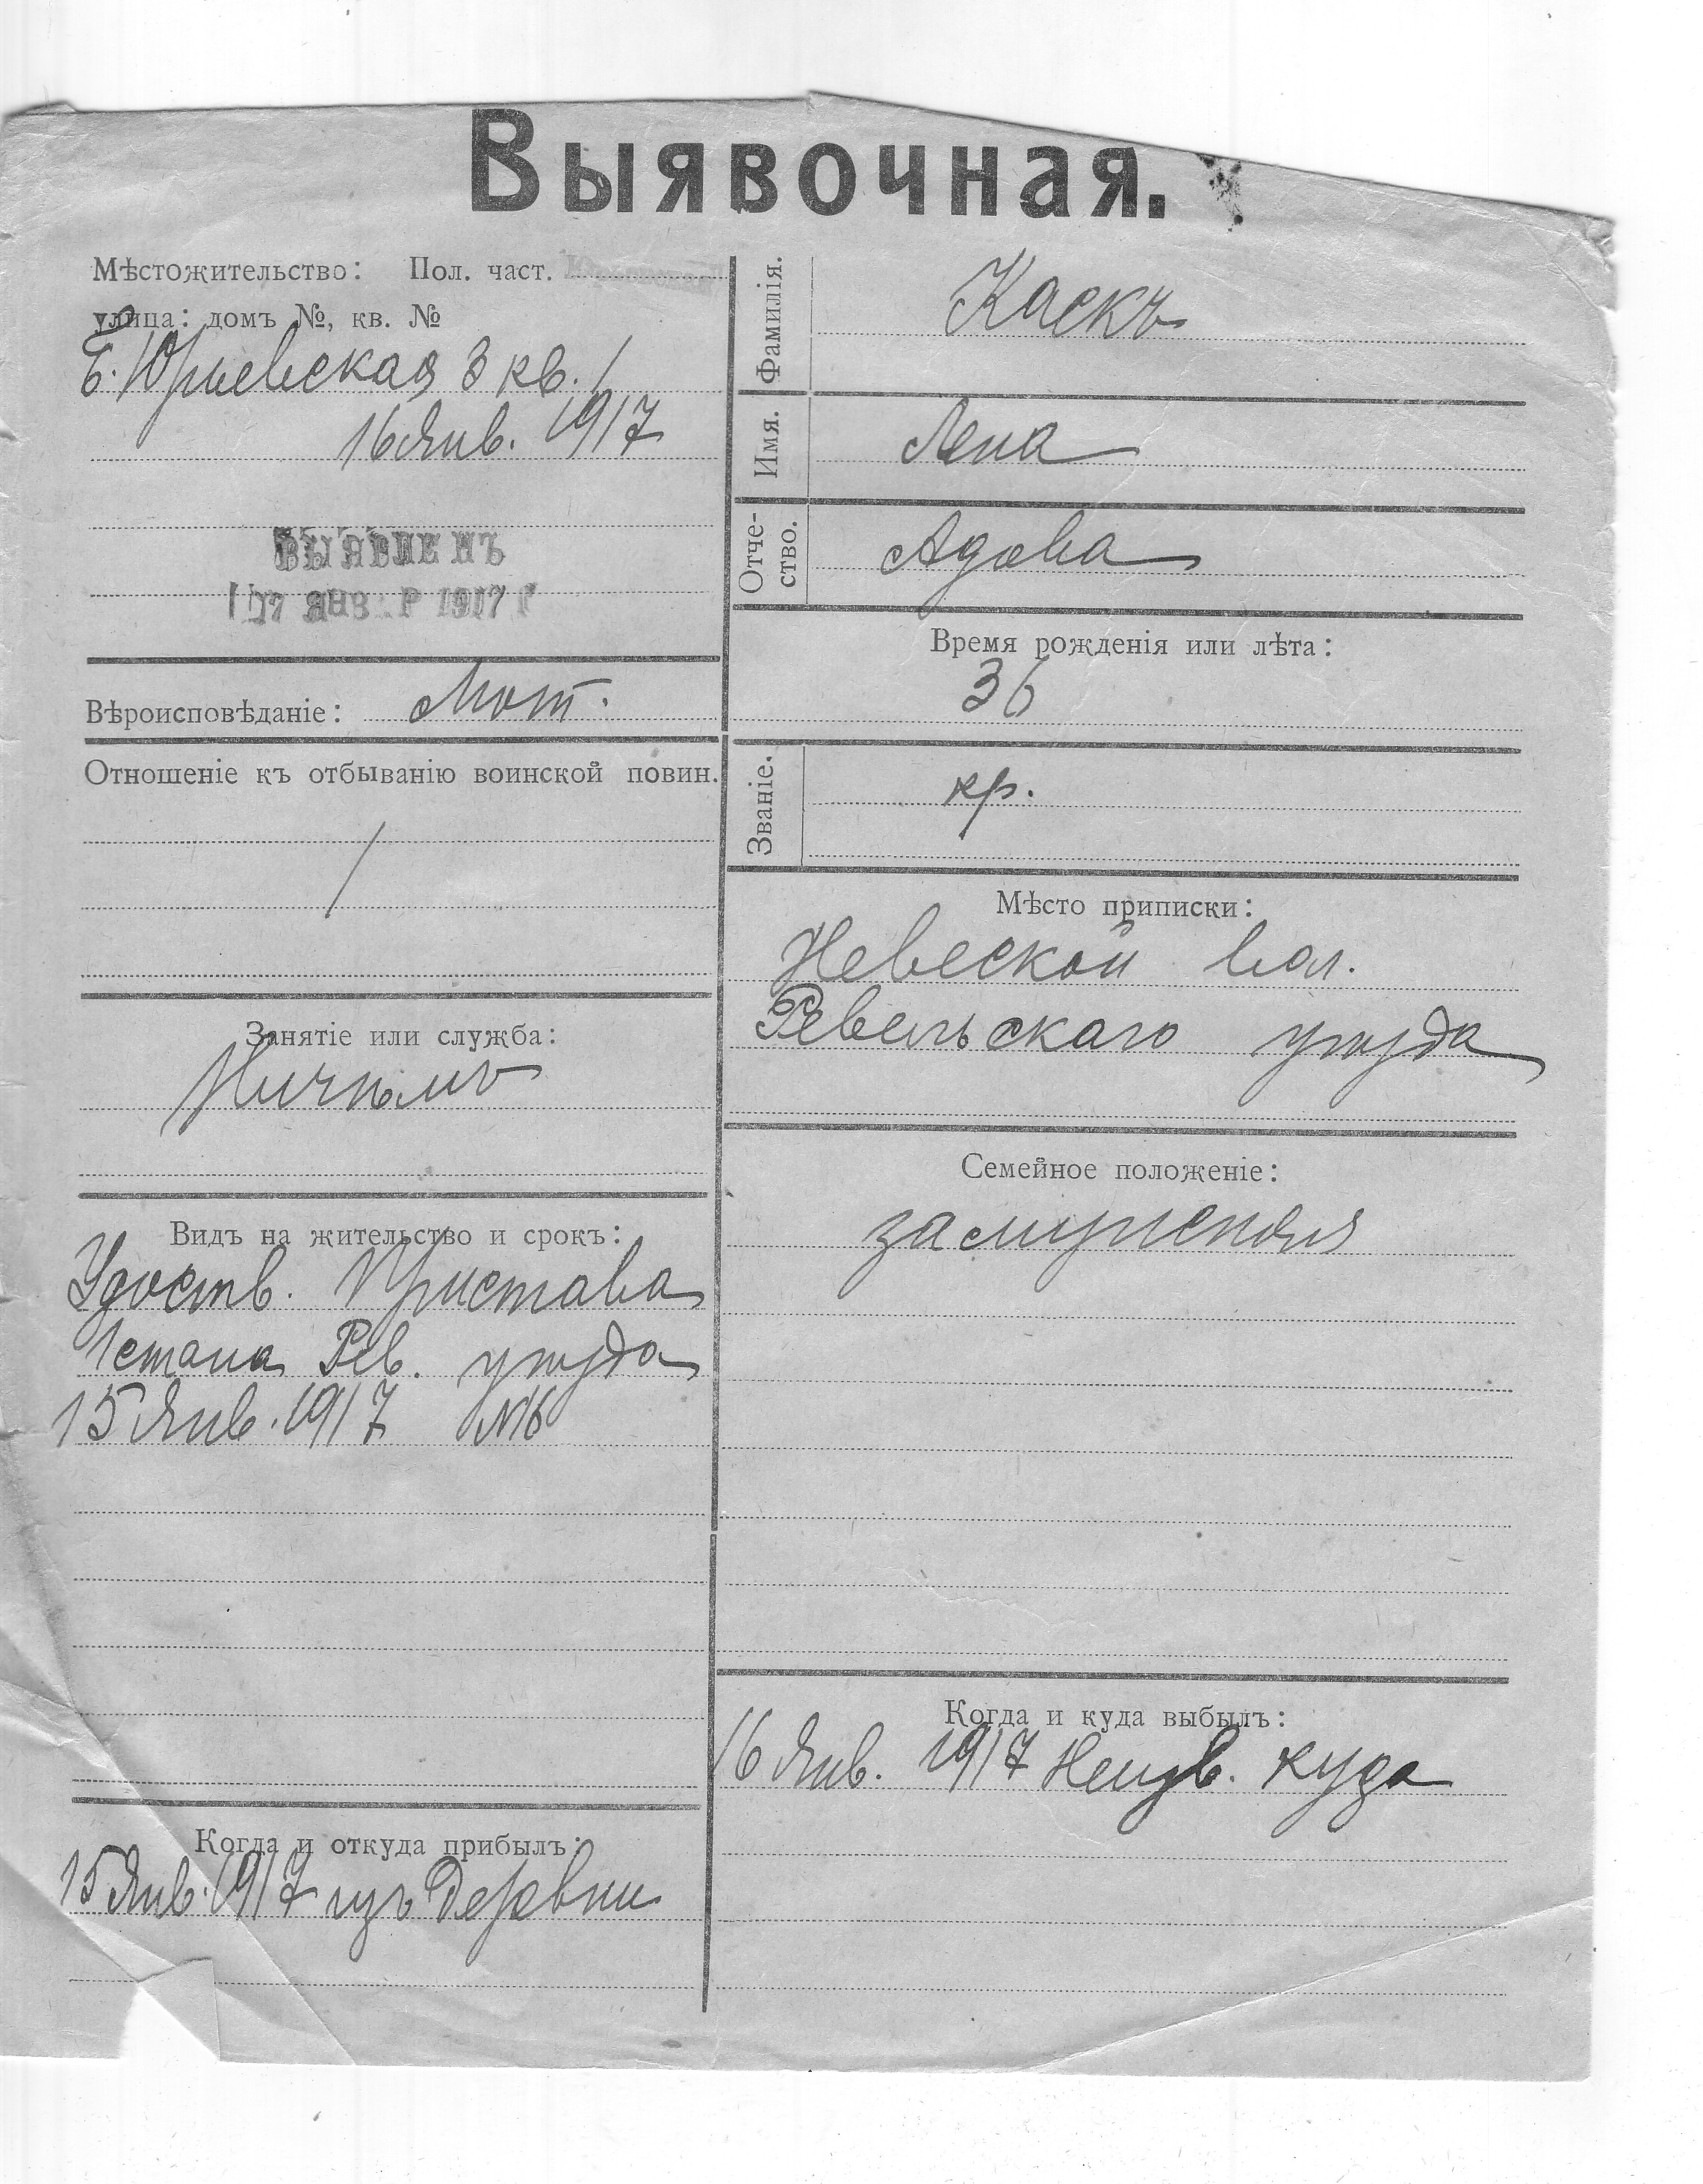 Выявочная.
Мѣстожительство: Пол. част.
улица: домъ №, кв. №
Б. Юрьевская 3 кв. 1
16 Янв. 1917
ВЫЯВЛЕНЪ
17 ЯНВ Р 1917 Г
Вѣроисповѣданіе: Лют.
Отношеніе къ отбыванію воинской повин.
/
Занятіе или служба:
Ничѣмъ
Видъ на жительство и срокъ:
Удоств. Пристава
1 стана Рев. уѣзда
15 Янв. 1917 №16
Когда и откуда прибылъ:
15 Янв. 1917 изъ Деревни
Фамилія. Каскъ
Имя. Лена
Отчество. Адова
Время рожденія или лѣта:
36
Званіе. кр.
Мѣсто приписки:
Невеской вол.
Ревельскаго уѣзда
Семейное положеніе:
замужняя
Когда и куда выбылъ:
16 Янв. 1917 Неизв. куда